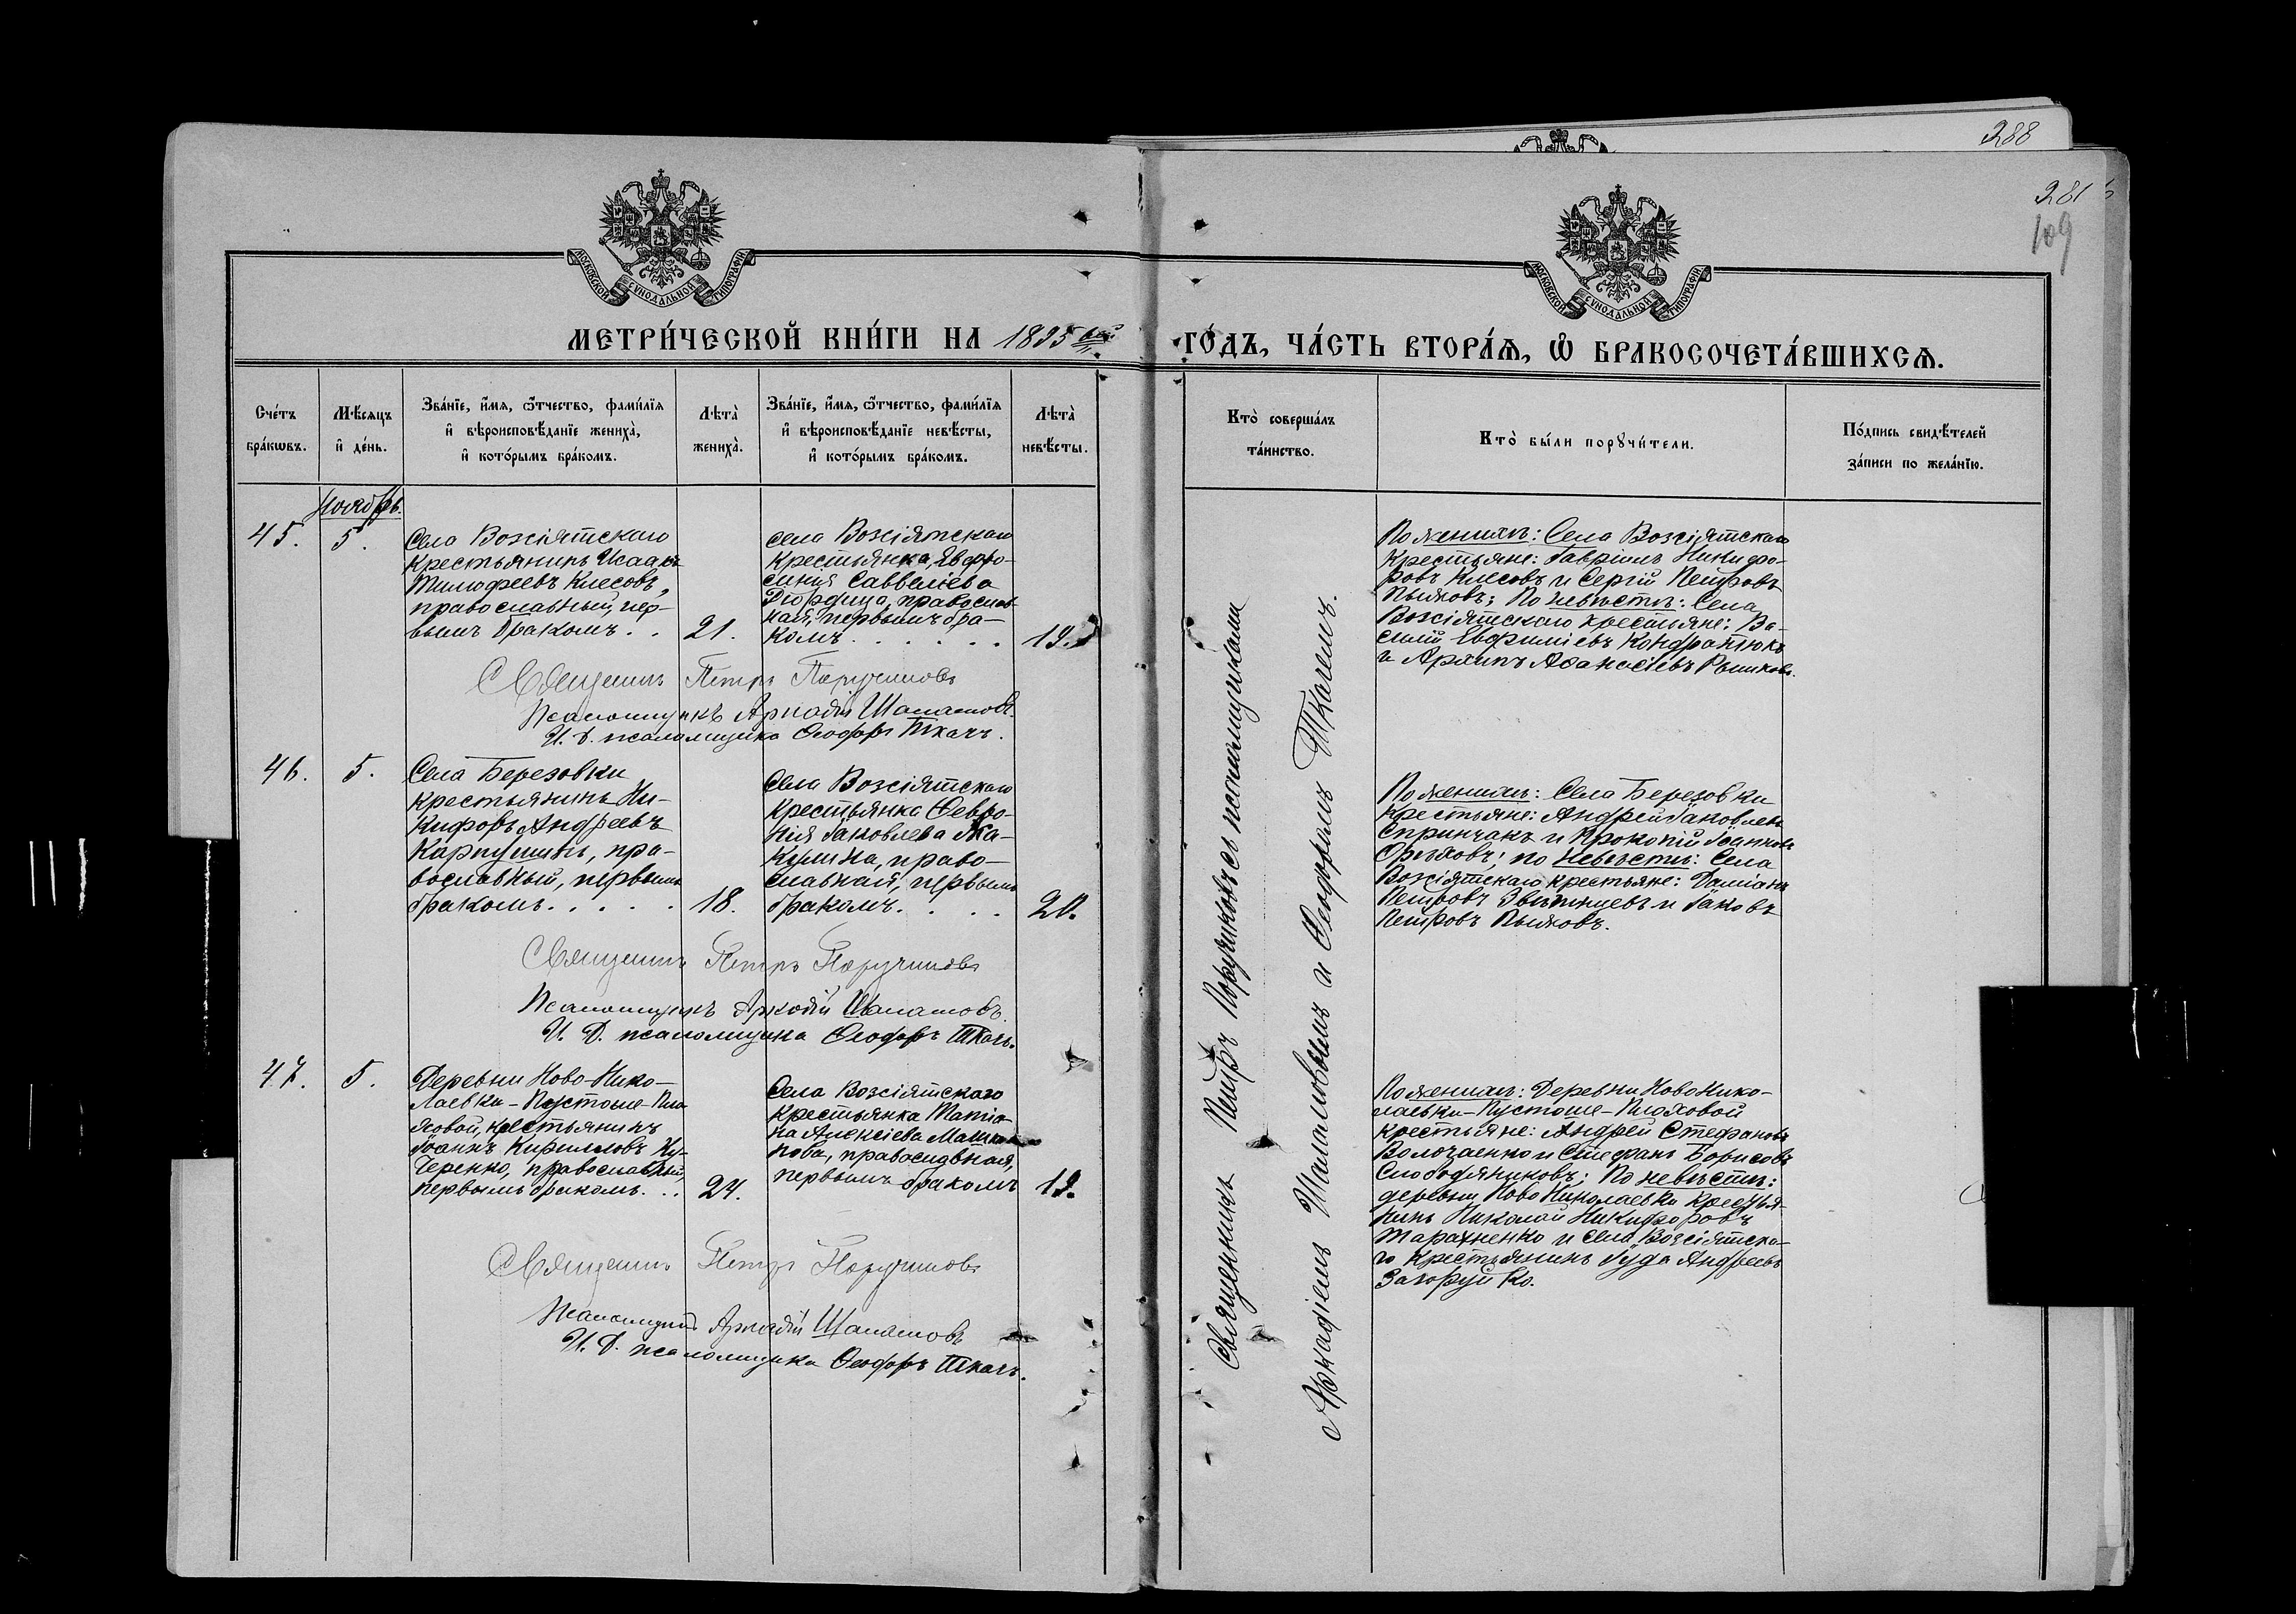 288
281
109
МОСКОВСКОЙ СѴНОДАЛЬНОЙ ТИПОГРАФІИ
МОСКОВСКОЙ СѴНОДАЛЬНОЙ ТИПОГРАФІИ
МЕТРИ́ЧЕСКОЙ КНИ́ГИ НА 1895 ый ГО́ДЪ, ЧА́СТЬ ВТОРА́Я, Ѽ БРАКОСОЧЕТА́ВШИХСѦ.
Сче́тъ бра́кѡвъ.
Мѣ́сяцъ и҆ де́нь.
Зва́нїе, и҆́мя, ѻ҆́тчество, фами́лїя и҆ вѣроисповѣ́данїе жениха̀, и҆ кото́рымъ бра́комъ.
Лѣта̀ жениха̀.
Зва́нїе, и҆́мя, ѻ҆́тчество, фами́лїя и҆ вѣроисповѣ́данїе невѣ́сты, и҆ кото́рымъ бра́комъ.
Лѣта̀ невѣ́сты.
Кто̀ соверша́лъ та́инство.
Кто̀ бы́ли порꙋчи́тели.
По́дпись свидѣ́телей за́писи по жела́нїю.
Ноябрь.
45.
5.
Села Возсіятскаго
крестьянинъ Исаакъ
Тимофеевъ Киесовъ,
православный, пер-
вымъ бракомъ . .
21.
села Возсіятскаго
крестьянка, Евфро-
синія Савввліева
православ-
ная, первымъ бра-
комъ . . . . . .
19.
По женихѣ: Села Возсіятскаго
крестьяне: Гавріилъ Никифо-
ровъ Киесовъ и Сергій Петровъ
Пыховъ; По невѣстѣ: Села
Возсіятскаго крестьяне: Ва-
силій Евфиміевъ Кондратюкъ
и Архипъ Аѳанасіевъ
Священникъ Петръ Поручиковъ
Псаломщикъ Аркадій Шаламовъ.
И. Д. псаломщика Ѳеодоръ Ткачъ.
46.
5.
Села Березовки
крестьянинъ Ни-
кифоръ Андреевъ
Карпушинъ, пра-
вославный, первымъ
бракомъ . . . . .
18.
Села Возсіятскаго
крестьянка Февро-
нія Іаковлева
право-
славная, первымъ
бракомъ . . . .
20.
По женихѣ: Села Березовки
крестьяне: Андрей Іаковлевъ
Спринчакъ и Прокопій Іоанновъ
Орѣховъ; по невѣстѣ: Села
Возсіятскаго крестьяне: Даміанъ
Петровъ и Іаковъ
Петровъ Пыховъ.
Священникъ Петръ Поручиковъ
Псаломщикъ Аркадій Шаламовъ.
И. Д. псаломщика Ѳеодоръ Ткачъ.
47.
5.
Деревни Ново-Нико-
лаевки-Пустоше-Пло-
ховой, крестьянинъ
Іоаннъ Кирилловъ Ку-
черенко, православный,
первымъ бракомъ. . .
24.
Села Возсіятскаго
крестьянка Татіа-
на Алексіева
православная,
первымъ бракомъ
19.
По женихѣ: Деревни Ново Нико-
лаевки-Пустоше-Плоховой
крестьяне: Андрей Стефановъ
и Стефанъ Борисовъ
Слободяниковъ; По невѣстѣ:
деревни Ново Николаевки крестья-
нинъ Николай Никифоровъ
Тарахненко и села Возсіятска-
го крестьянинъ Іуда Андреевъ
Загоруйко.
Священникъ Петръ Поручиковъ
Псаломщикъ Аркадій Шаламовъ
И. Д. псаломщика Ѳеодоръ Ткачъ.
Священникъ Петръ Поручиковъ съ псаломщиками
Аркадіемъ Шаламовымъ и Ѳеодоромъ Ткачемъ.